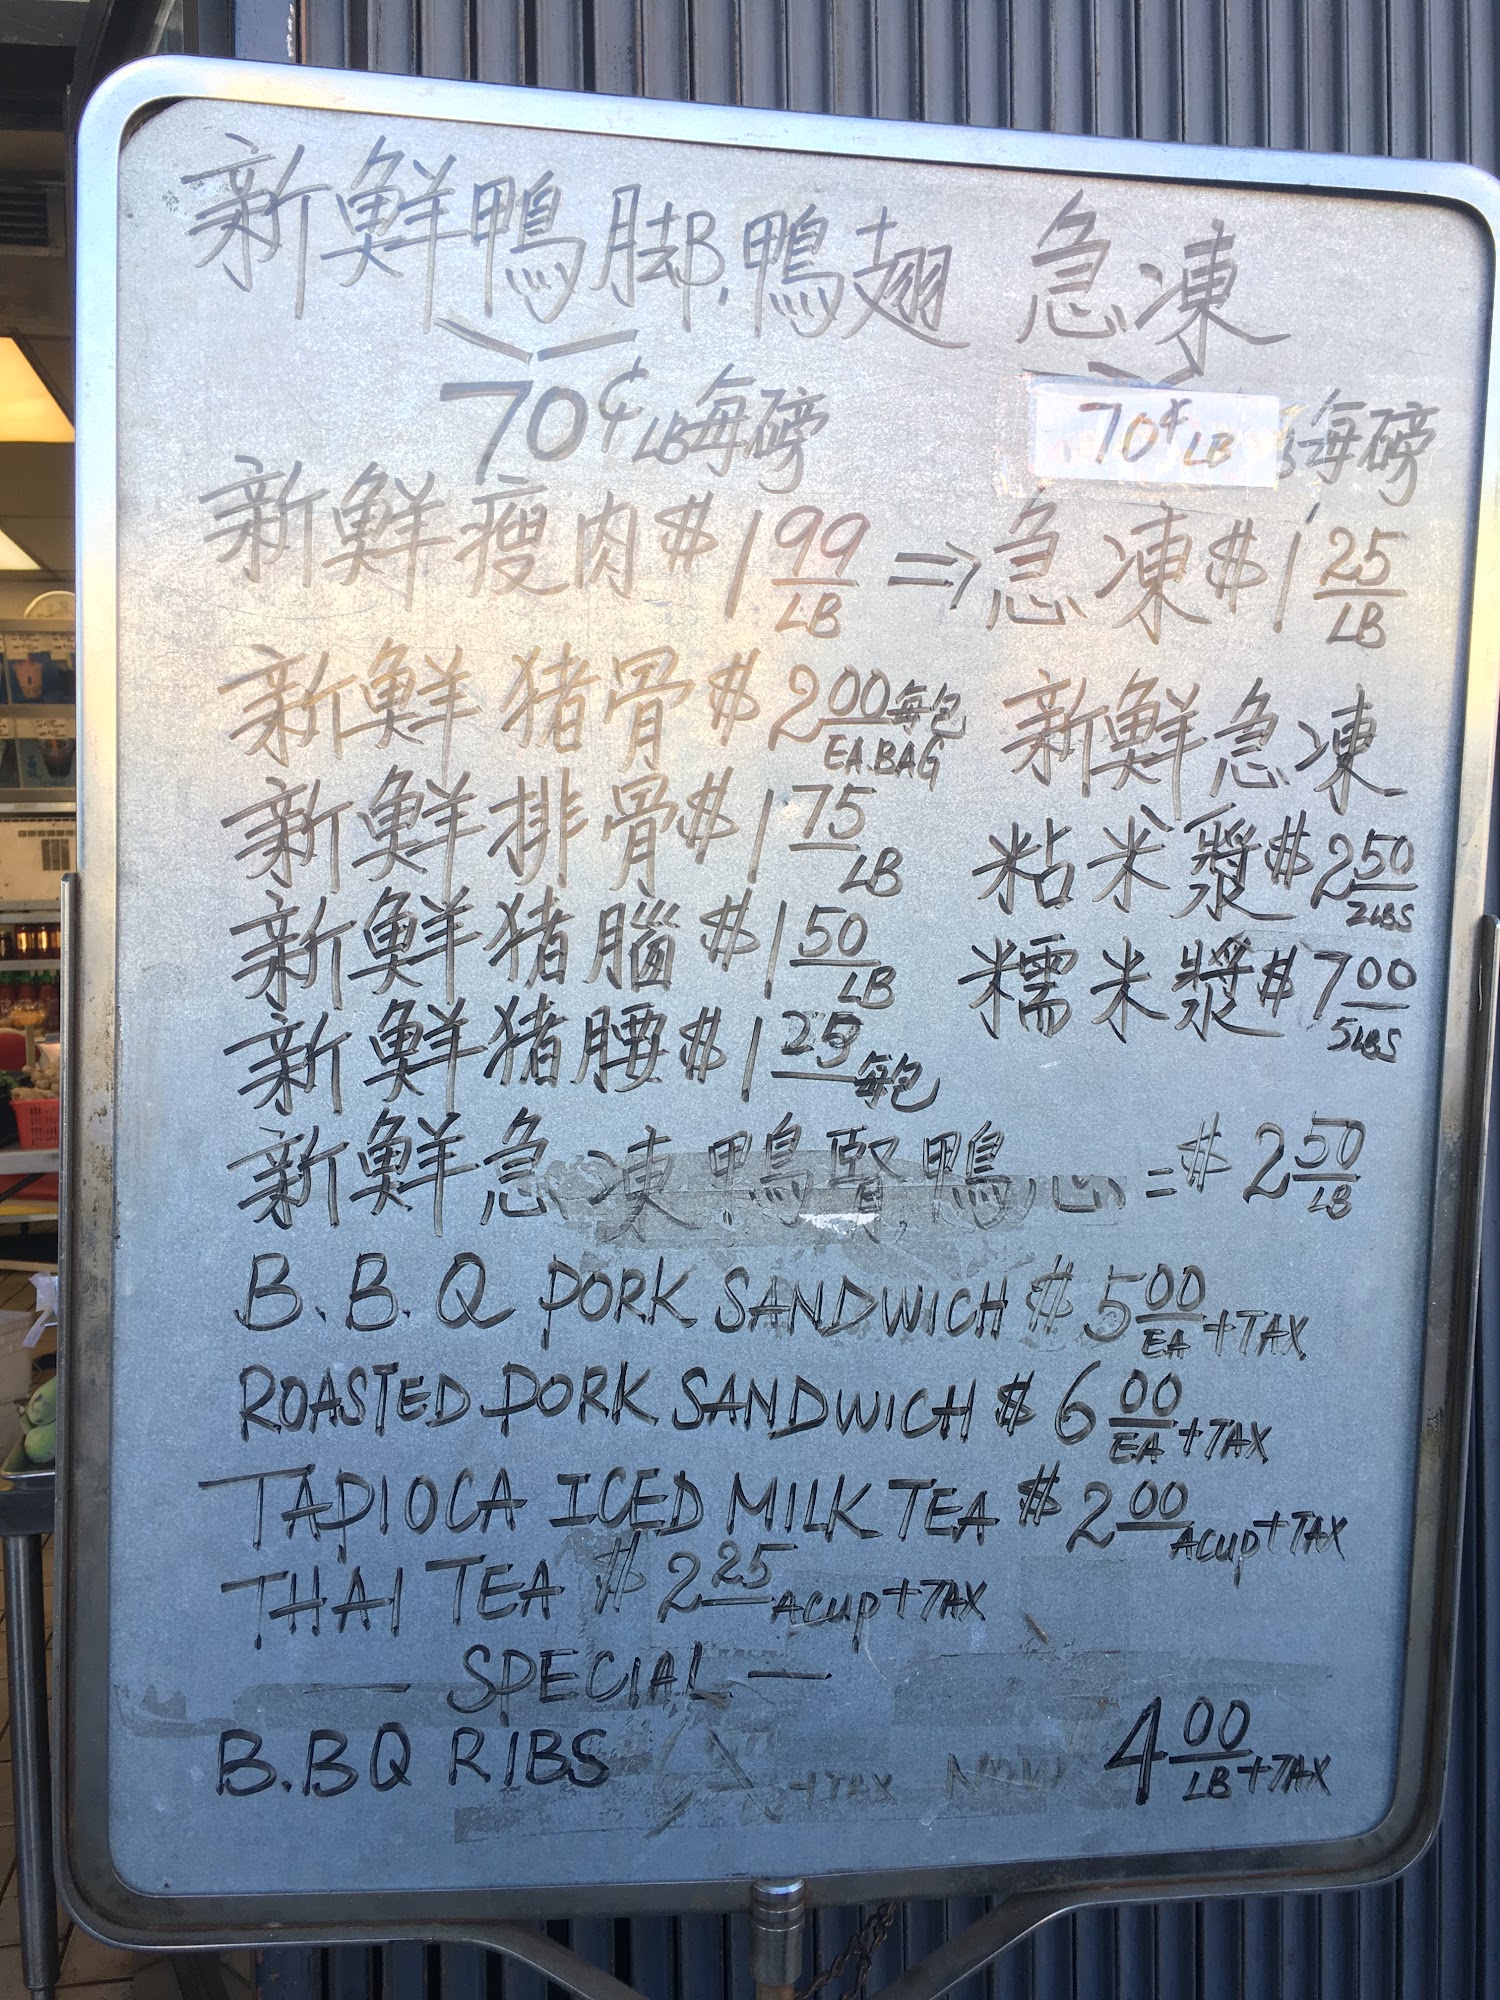 新鮮鴨脚,鴨翅 急凍
70¢LB每磅 70¢LB 每磅
新鮮瘦肉$1.99/LB ⇒ 急凍$1.25/LB
新鮮猪骨$2.00每包 EA.BAG 新鮮急凍
新鮮排骨$1.75 LB 粘米漿$2.50 2LBS
新鮮猪腦$1.50 LB 糯米漿$7.00 5LBS
新鮮猪腰$1.25每包
新鮮急凍鴨腎,鴨心=$2.50 LB
B.B.Q PORK SANDWICH $5.00 EA+TAX
ROASTED PORK SANDWICH $6.00 EA+TAX
TAPIOCA ICED MILK TEA $2.00 A CUP+TAX
THAI TEA $2.25 A CUP+TAX
— SPECIAL —
B.BQ RIBS +TAX NOW 4.00 LB+TAX